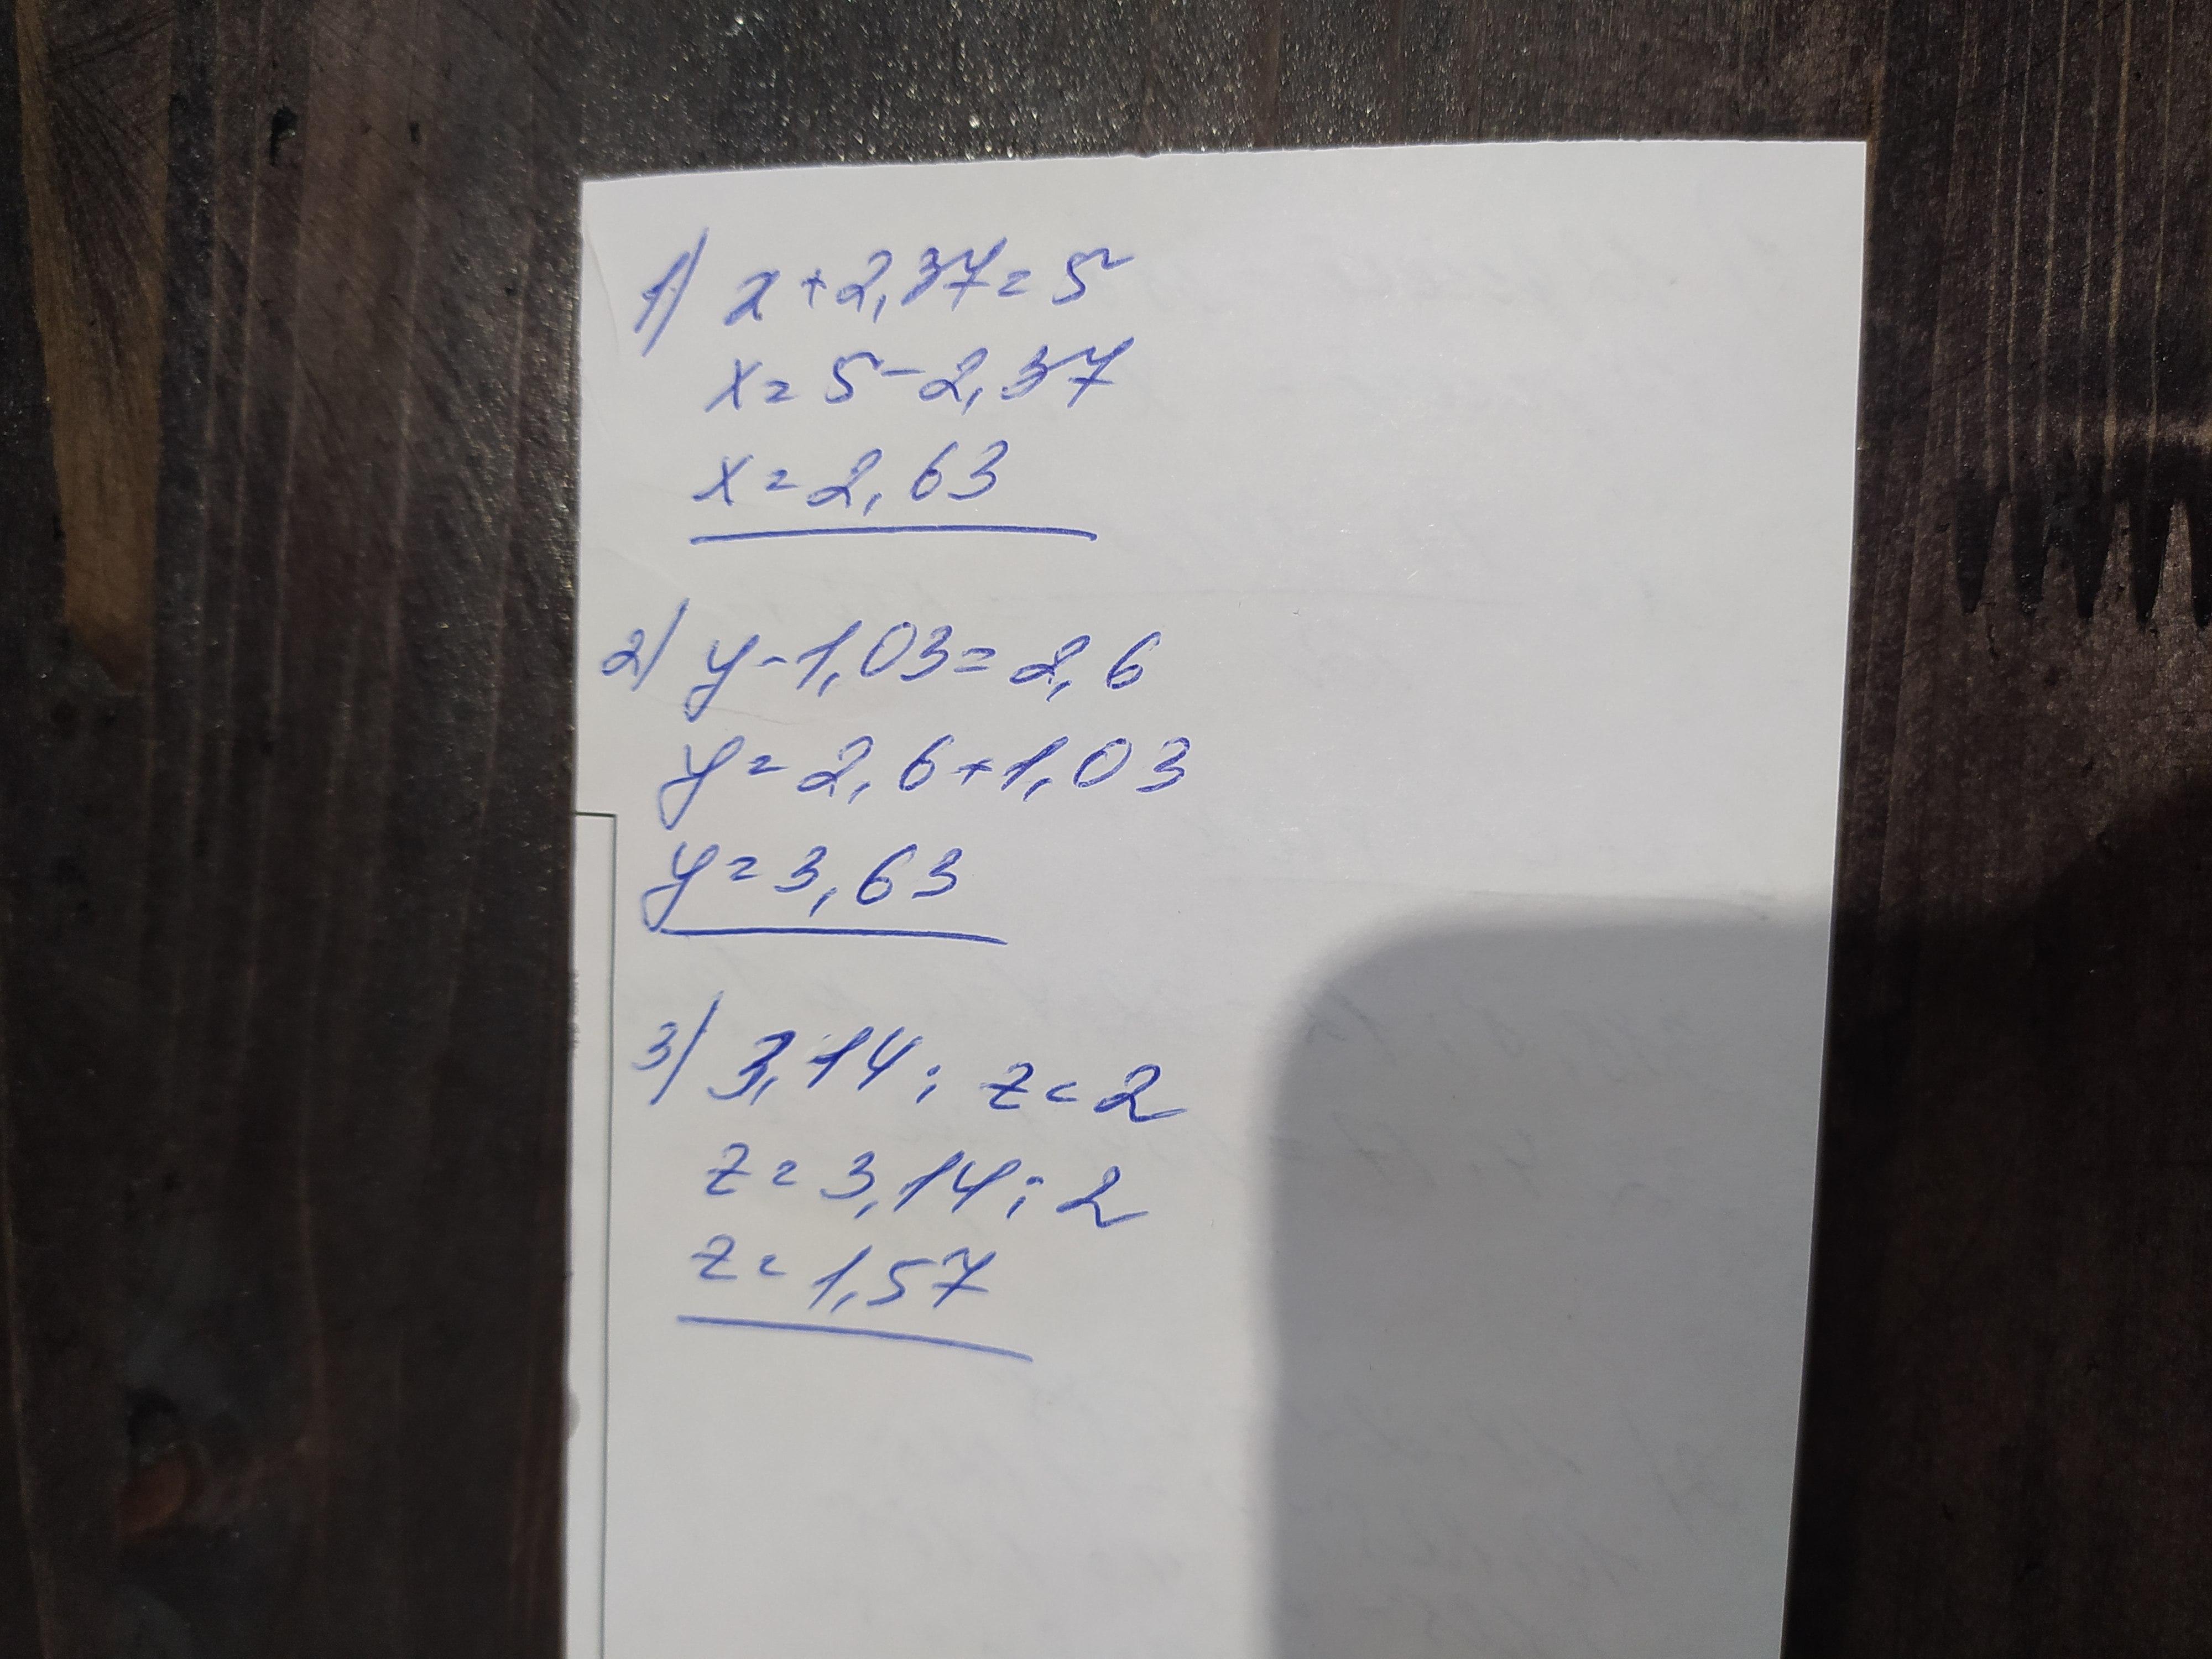 1) x+2,37=5
x=5-2,37
x=2,63
2) y-1,03=2,6
y=2,6+1,03
y=3,63
3) 3,14:z=2
z=3,14:2
z=1,57